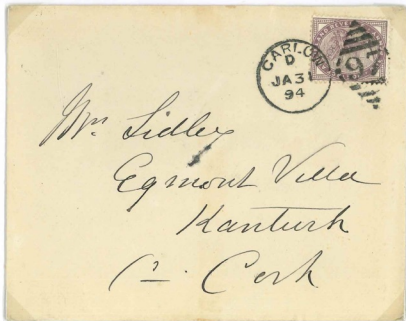 CARLOW
D
JA 31
94
Mrs Sidley
Egmont Villa
Kanturk
Co. Cork